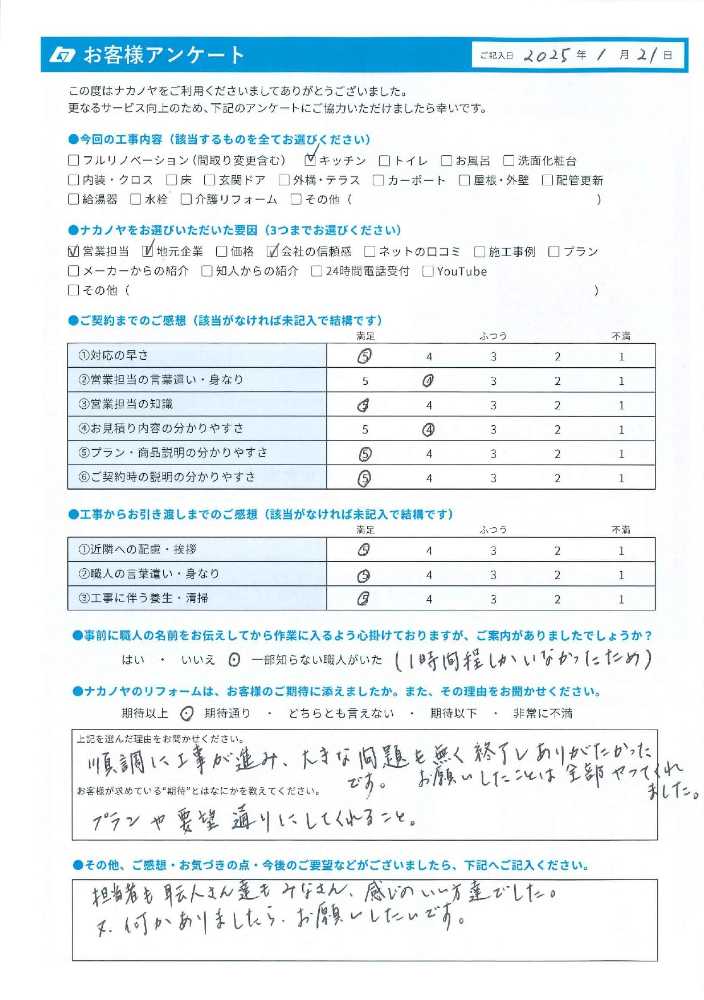 お客様アンケート
ご記入日 2025年 1月 21日
この度はナカノヤをご利用くださいましてありがとうございました。
更なるサービス向上のため、下記のアンケートにご協力いただけましたら幸いです。
●今回の工事内容（該当するものを全てお選びください）
□フルリノベーション（間取り変更含む） ☑キッチン □トイレ □お風呂 □洗面化粧台
□内装・クロス □床 □玄関ドア □外構・テラス □カーポート □屋根・外壁 □配管更新
□給湯器 □水栓 □介護リフォーム □その他（ ）
●ナカノヤをお選びいただいた要因（3つまでお選びください）
☑営業担当 ☑地元企業 □価格 ☑会社の信頼感 □ネットの口コミ □施工事例 □プラン
□メーカーからの紹介 □知人からの紹介 □24時間電話受付 □YouTube
□その他（ ）
●ご契約までのご感想（該当がなければ未記入で結構です）
満足 ふつう 不満
①対応の早さ 5 4 3 2 1
②営業担当の言葉遣い・身なり 5 4 3 2 1
③営業担当の知識 5 4 3 2 1
④お見積り内容の分かりやすさ 5 4 3 2 1
⑤プラン・商品説明の分かりやすさ 5 4 3 2 1
⑥ご契約時の説明の分かりやすさ 5 4 3 2 1
●工事からお引き渡しまでのご感想（該当がなければ未記入で結構です）
満足 ふつう 不満
①近隣への配慮・挨拶 5 4 3 2 1
②職人の言葉遣い・身なり 5 4 3 2 1
③工事に伴う養生・清掃 5 4 3 2 1
●事前に職人の名前をお伝えしてから作業に入るよう心掛けておりますが、ご案内がありましたでしょうか？
はい ・ いいえ ・ 一部知らない職人がいた (1時間程しかいなかったため)
●ナカノヤのリフォームは、お客様のご期待に添えましたか。また、その理由をお聞かせください。
期待以上 ・ 期待通り ・ どちらとも言えない ・ 期待以下 ・ 非常に不満
上記を選んだ理由をお聞かせください。
順調に工事が進み、大きな問題も無く終了しありがたかった
です。 お願いしたことは全部やってくれ
ました。
お客様が求めている“期待”とはなにかを教えてください。
プランや要望通りにしてくれること。
●その他、ご感想・お気づきの点・今後のご要望などがございましたら、下記へご記入ください。
担当者も職人さん達もみなさん、感じのいい方達でした。
又、何かありましたら、お願いしたいです。